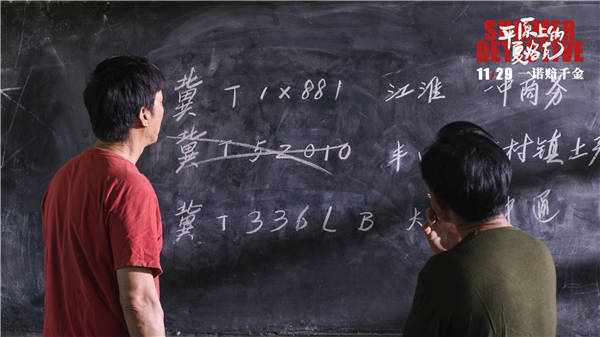 SUMMER
DETECTIVE
平原上的
夏洛克
11/29 一诺赔千金
冀 T 1×881 江淮 商务
冀 T 52010 丰 村镇
冀 T 336LB 大 通